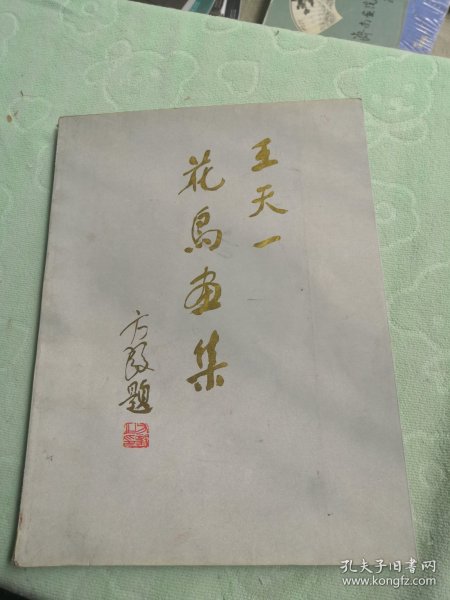 王天一
花鸟画集
方毅题
孔夫子旧书网
www.kongfz.com